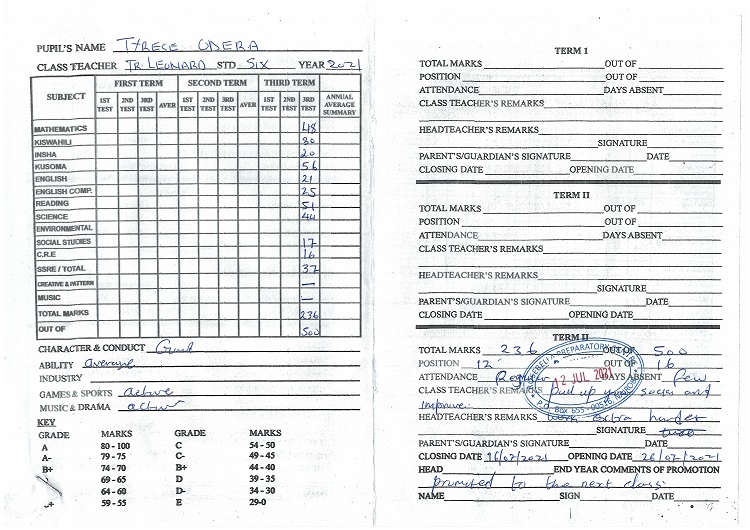 PUPIL'S NAME TYRESE ODERA
CLASS TEACHER TR. LEONARD STD SIX YEAR 2021
SUBJECT FIRST TERM SECOND TERM THIRD TERM ANNUAL AVERAGE SUMMARY
1ST TEST 2ND TEST 3RD TEST AVER 1ST TEST 2ND TEST 3RD TEST AVER 1ST TEST 2ND TEST 3RD TEST
MATHEMATICS 48
KISWAHILI 30
INSHA 20
KUSOMA 56
ENGLISH 21
ENGLISH COMP. 25
READING 51
SCIENCE 44
ENVIRONMENTAL
SOCIAL STUDIES 17
C.R.E 16
SSRE / TOTAL 37
CREATIVE & PATTERN —
MUSIC —
TOTAL MARKS 236
OUT OF 500
CHARACTER & CONDUCT Good
ABILITY average
INDUSTRY
GAMES & SPORTS active
MUSIC & DRAMA active
KEY
GRADE MARKS GRADE MARKS
A 80 - 100 C 54 - 50
A- 79 - 75 C- 49 - 45
B+ 74 - 70 B+ 44 - 40
69 - 65 D 39 - 35
64 - 60 D- 34 - 30
C+ 59 - 55 E 29-0
TERM 1
TOTAL MARKS OUT OF
POSITION OUT OF
ATTENDANCE DAYS ABSENT
CLASS TEACHER'S REMARKS
HEADTEACHER'S REMARKS
SIGNATURE
PARENT'S/GUARDIAN'S SIGNATURE DATE
CLOSING DATE OPENING DATE
TERM II
TOTAL MARKS OUT OF
POSITION OUT OF
ATTENDANCE DAYS ABSENT
CLASS TEACHER'S REMARKS
HEADTEACHER'S REMARKS
SIGNATURE
PARENT'S/GUARDIAN'S SIGNATURE DATE
CLOSING DATE OPENING DATE
TERM II
TOTAL MARKS 236 OUT OF 500
POSITION 12 OUT OF 16
ATTENDANCE Regular DAYS ABSENT few
CLASS TEACHER'S REMARKS Pull up your socks and
improve.
HEADTEACHER'S REMARKS work extra harder
SIGNATURE
PARENT'S/GUARDIAN'S SIGNATURE DATE
CLOSING DATE 16/07/2021 OPENING DATE 26/07/2021
HEAD END YEAR COMMENTS OF PROMOTION
promoted to the next class.
NAME SIGN DATE
PREPARATORY
12 JUL 2021
P.O. BOX 655 - 00516, NAIROBI